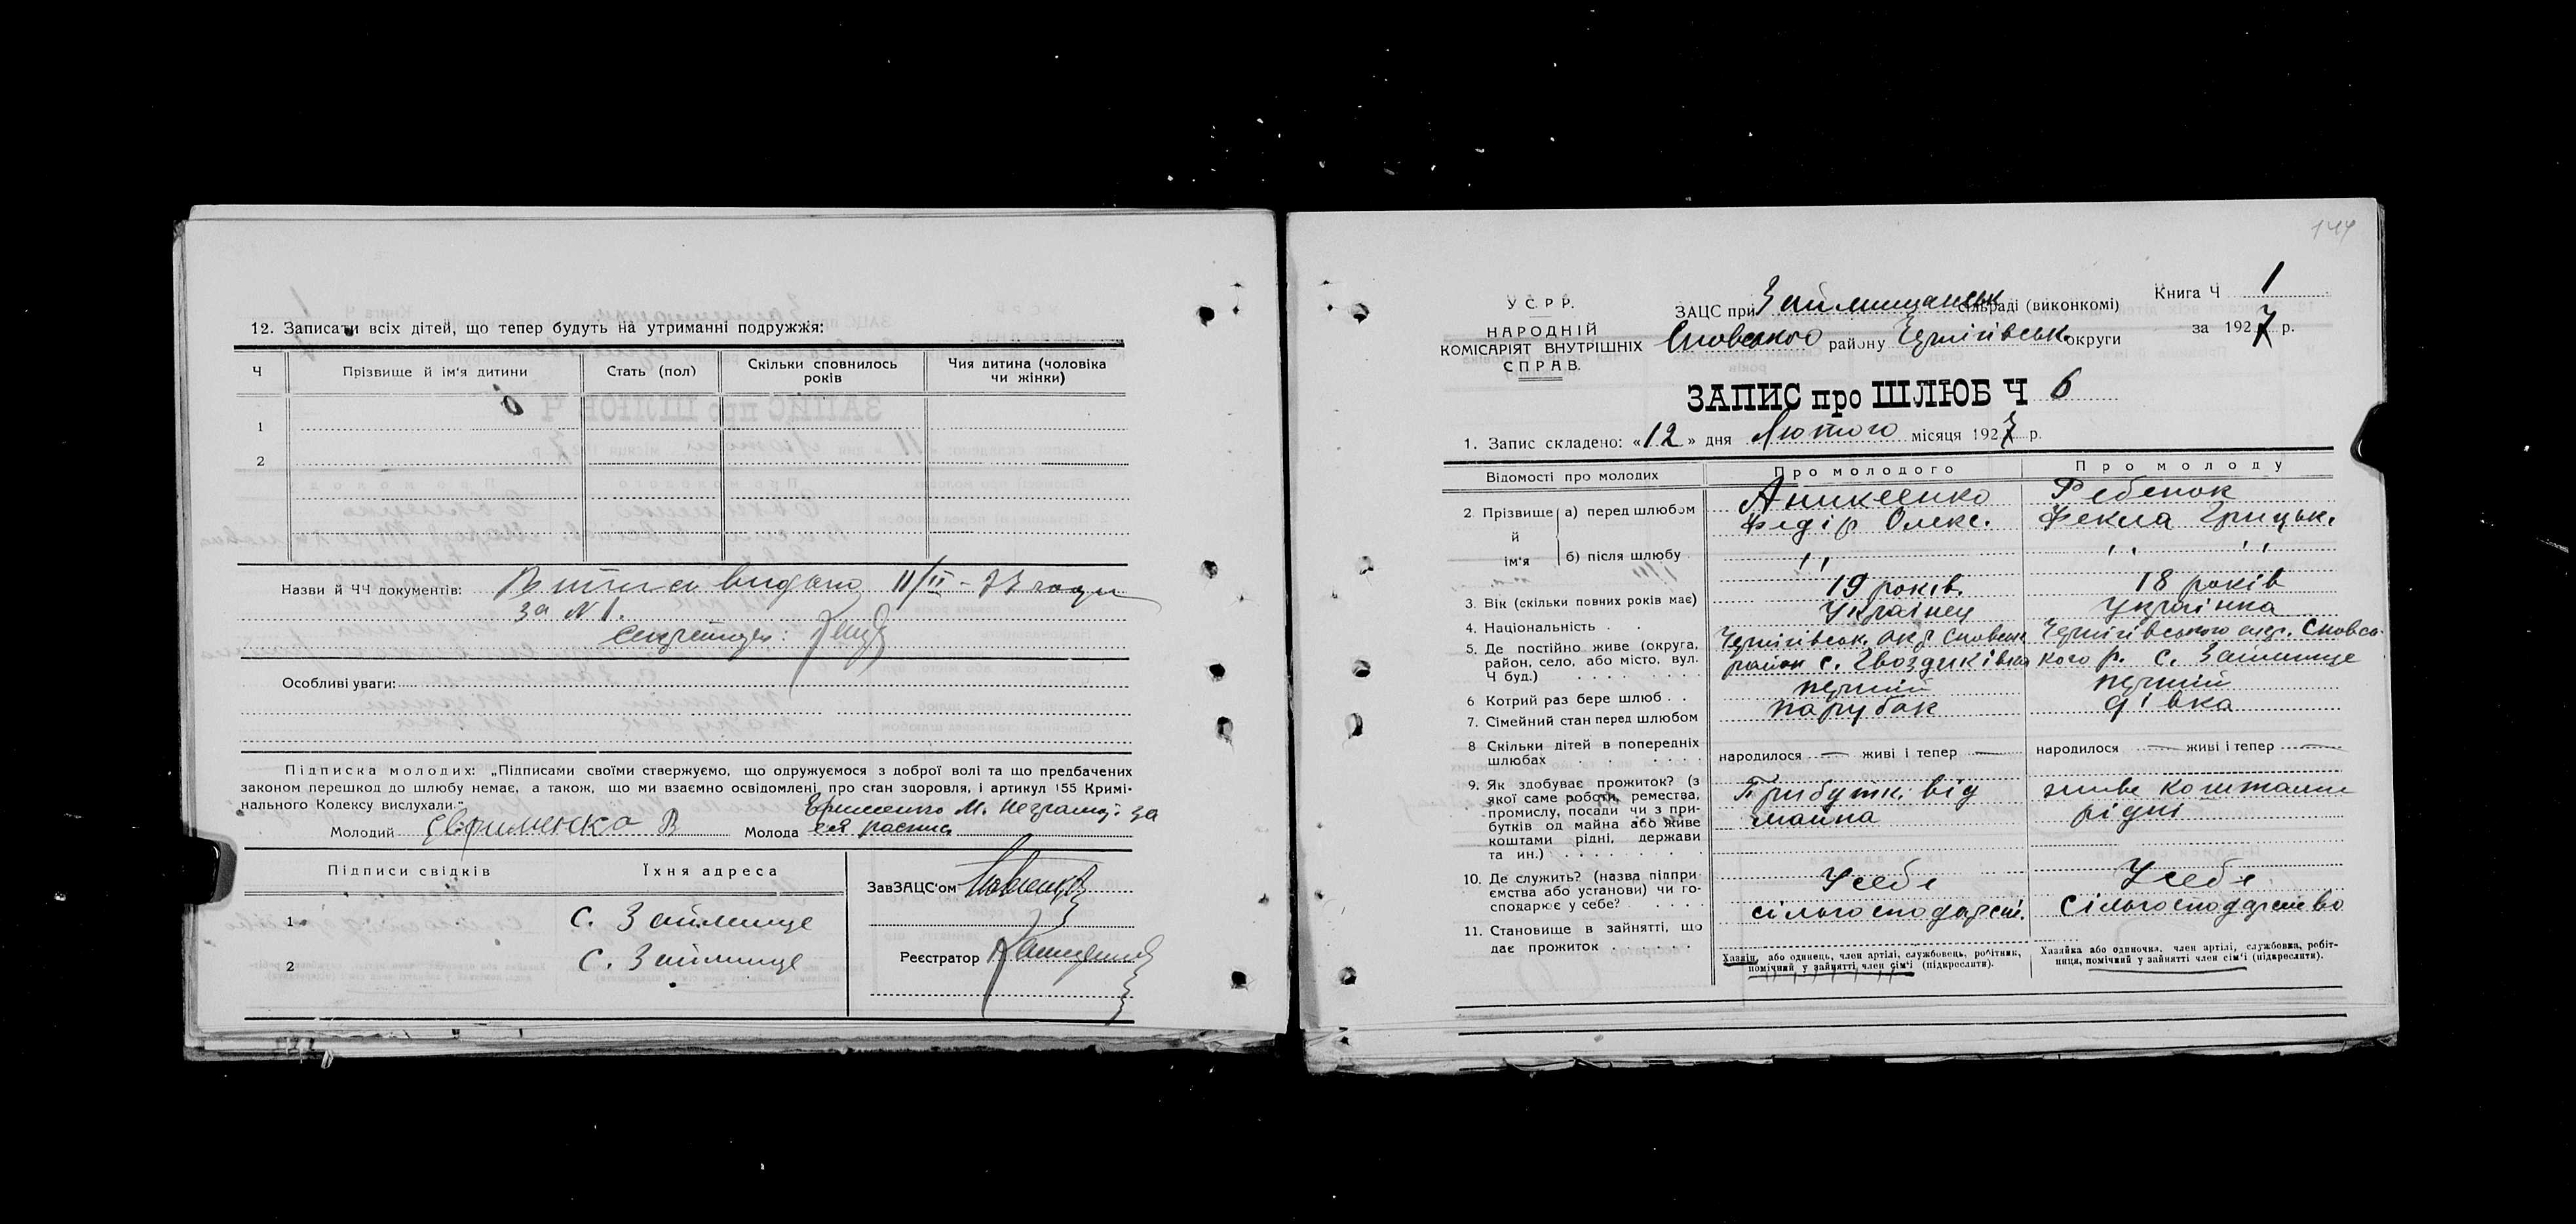 12. Записати всіх дітей, що тепер будуть на утриманні подружжя:
Ч
Прізвище й ім'я дитини
Стать (пол)
Скільки сповнилось
років
Чия дитина (чоловіка
чи жінки)
1
2
Назви й ЧЧ документів: видано 11/II – 27 году
за N 1.
Секретарь:
Особливі уваги:
Підписка молодих: „Підписами своїми стверджуємо, що одружуємося з доброї волі та що предбачених
законом перешкод до шлюбу немає, а також, що ми взаємно освідомлені про стан здоровля, і артикул 155 Кримі-
нального Кодексу вислухали."
Молодий Єфименко В Молода Ефименко М. неграмот. за
ея роспись
Підписи свідків
Їхня адреса
1 с. Займище
2 с. Займище
ЗавЗАЦС'ом
Реєстратор
144
У С. Р Р.
НАРОДНІЙ
КОМІСАРІЯТ ВНУТРІШНІХ
СПРАВ.
ЗАЦС при Займищанськ сільраді (виконкомі)
Сновського району Чернігівськ. округи
Книга Ч 1
за 1927 р.
ЗАПИС про ШЛЮБ Ч 6
1. Запис складено: «12» дня Лютого місяця 1927 р.
Відомості про молодих
Про молодого
Про молоду
2 Прізвище й ім'я
а) перед шлюбом
Аникеенко
Федір Олекс.
Ребенок
Фекла Грицьк.
б) після шлюбу
" "
" " " "
3. Вік (скільки повних років має)
19 років.
18 років
4. Національність
Українец
Українка
5. Де постійно живе (округа,
район, село, або місто, вул.
Ч буд.)
Чернігівськ. окр Сновськ
район с. Гвоздиківка
Чернігівського окр. Сновсь-
кого р. с. Займище
6 Котрий раз бере шлюб
перший
перший
7. Сімейний стан перед шлюбом
парубок
дівка
8 Скільки дітей в попередніх
шлюбах
народилося — живі і тепер —
народилося — живі і тепер —
9. Як здобуває прожиток? (з
якої саме роботи, ремества,
промислу, посади чи з при-
бутків од майна або живе
коштами рідні, держави
та ин.)
Прибутк. від
майна
живе коштами
рідні
10. Де служить? (назва підпри-
ємства або установи) чи го-
сподарює у себе?
У себе
У себе
11. Становище в зайнятті, що
дає прожиток
сільгосподарст.
Сільгосподарство
Хазяін, або одинець, член артілі, службовець, робітник,
помічний у зайнятті член сім'ї (підкреслити).
Хазяйка або одиночка, член артілі, службовка, робіт-
ниця, помічний у зайнятті член сім'ї (підкреслити).